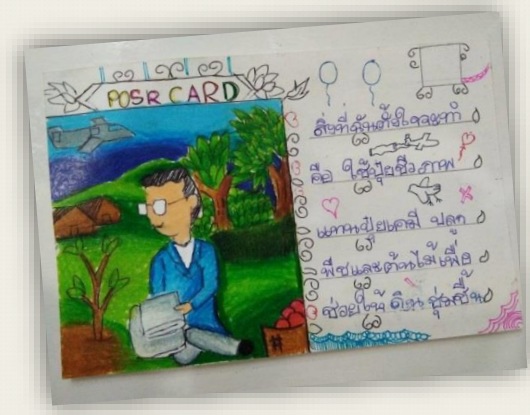 POSR CARD
สิ่งที่ฉันตั้งใจจะทำ
คือ ใช้ปุ๋ยชีวภาพ
แทนปุ๋ยเคมี ปลูก
พืชและต้นไม้เพื่อ
ช่วยให้ดินชุ่มชื้น